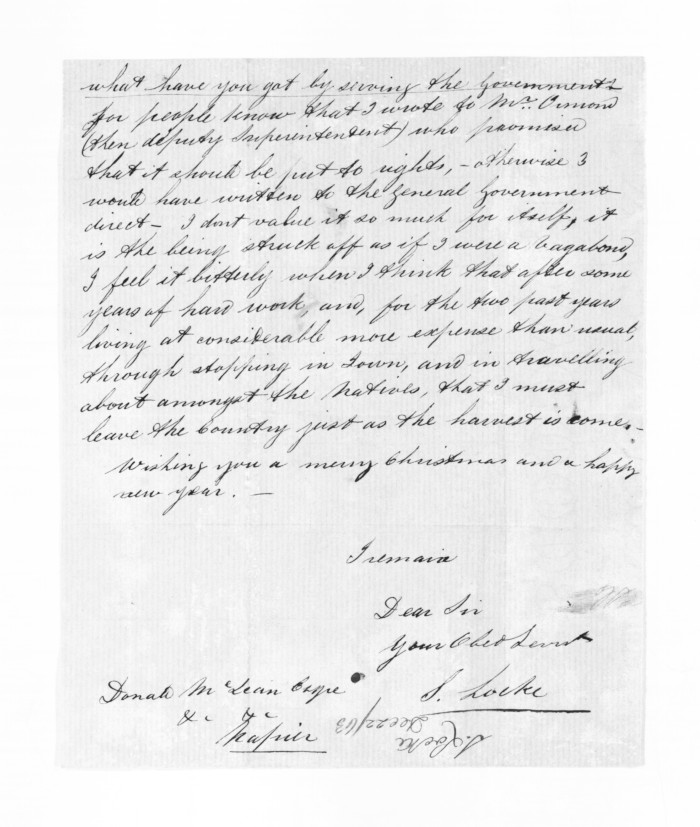 what have you got by serving the Government?
for people know that I wrote to Mr. Ormond
(then deputy Superintendent) who promised
that it should be put to rights, - otherwise I
would have written to the General Government
direct - I dont value it so much for itself, it
is the being struck off as if I were a vagabond,
I feel it bitterly when I think that after some
years of hard work, and, for the two past years
living at considerable more expense than usual,
through stopping in Town, and in travelling
about amongst the Natives, that I must
leave the Country just as the harvest is come. -
Wishing you a merry Christmas and a happy
new year. -
I remain
Dear Sir
Your Obed Servt
S. Locke
Donald McLean Esqre
&c &c
Napier
S. Locke
Dec 22/63